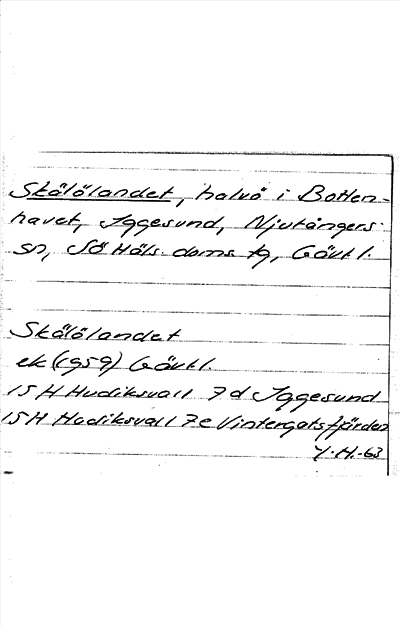 Skålölandet, halvö i Botten-
havet, Iggesund, Njutångers
sn, Sö Häls. doms. tg, Gävl l.
Skålölandet
ek (1959) Gävl l.
15 H Hudiksvall 7 d Iggesund
15 H Hudiksvall 7 e Vintergatsfjärden
Y. H. -63